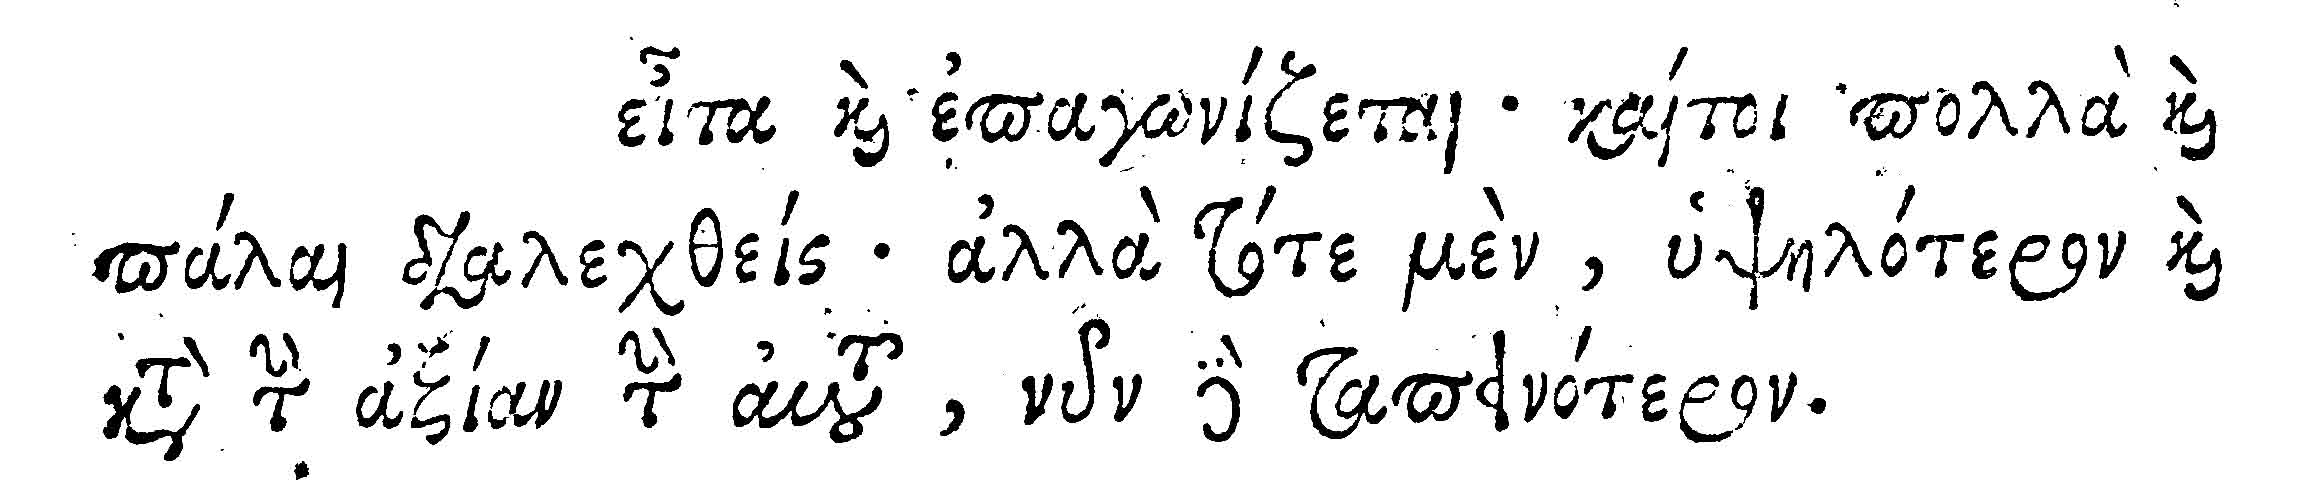 εἶτα καὶ ἐπαγωνίζεται· καίτοι πολλὰ καὶ
πάλαι διαλεχθείς· ἀλλὰ τότε μὲν, ὑψηλότερον καὶ
κατὰ τὴν ἀξίαν τὴν αὐτοῦ, νῦν δὲ ταπεινότερον.